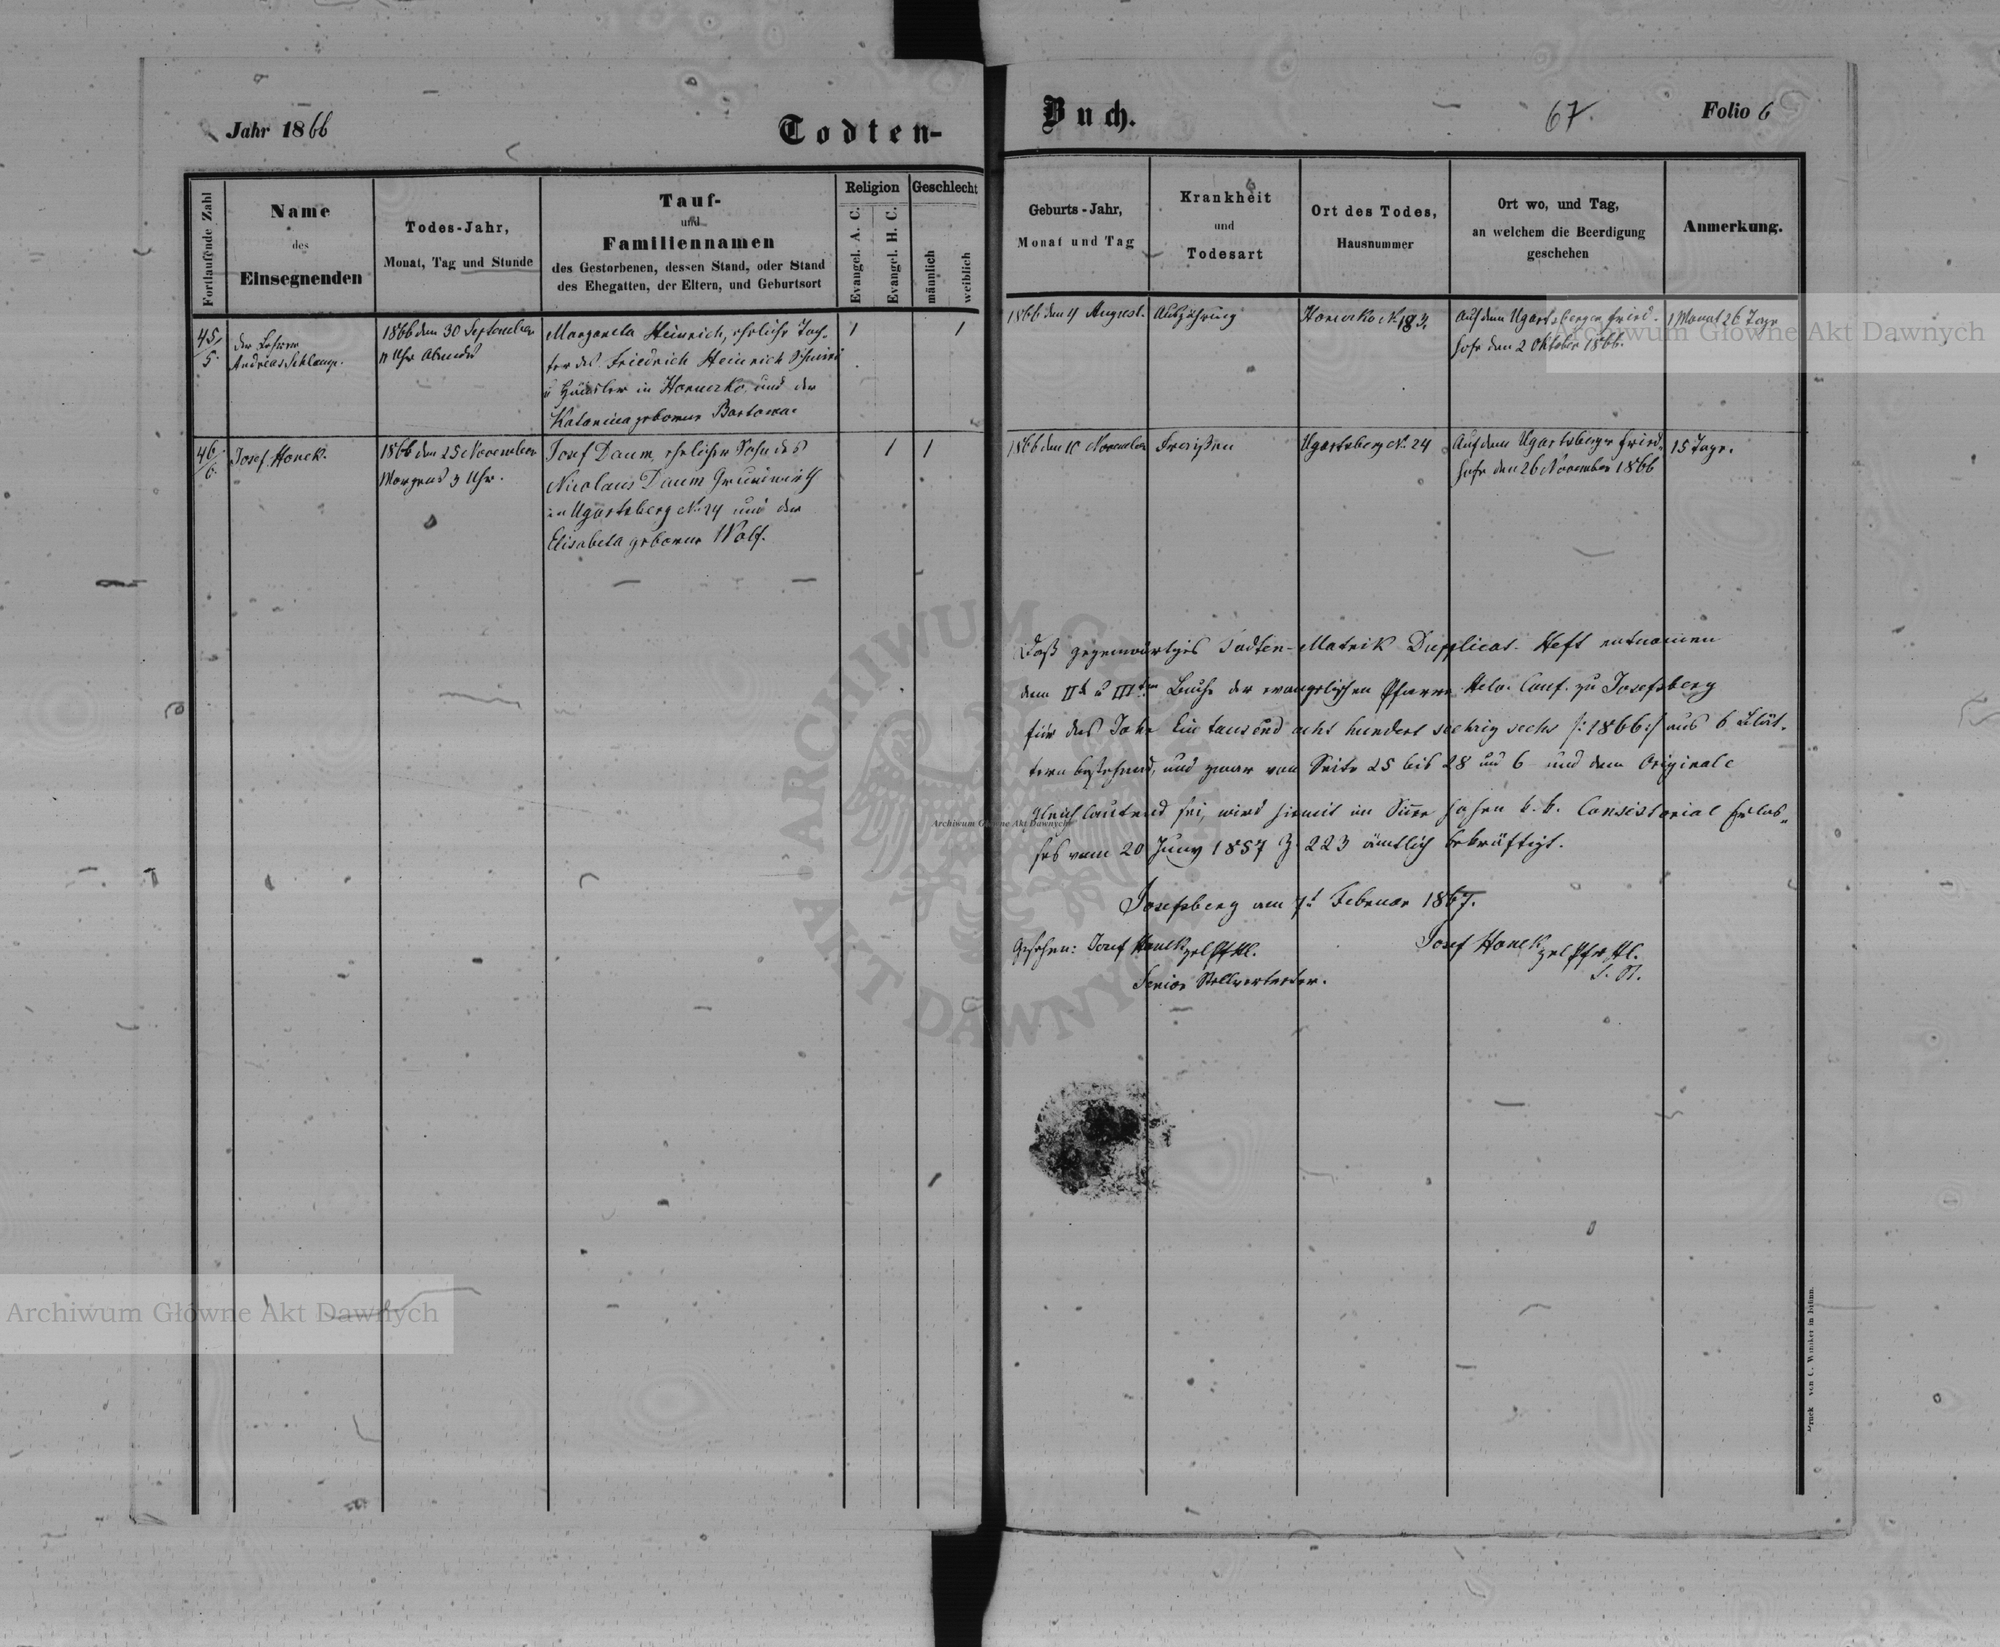 Jahr 1866
Todten-
Buch.
67.
Folio 6
Fortlaufende Zahl
Name
des
Einsegnenden
Todes-Jahr,
Monat, Tag und Stunde
Tauf-
und
Familiennamen
des Gestorbenen, dessen Stand, oder Stand
des Ehegatten, der Eltern, und Geburtsort
Religion
Evangel. A. C.
Evangel. H. C.
Geschlecht
männlich
weiblich
Geburts-Jahr,
Monat und Tag
Krankheit
und
Todesart
Ort des Todes,
Hausnummer
Ort wo, und Tag,
an welchem die Beerdigung
geschehen
Anmerkung.
45/5.
der Lehrer
Andreas Schlamp.
1866 den 30 September
11 Uhr Abends
Margareta Heinrich, ehrliche Toch-
ter des Friedrich Heinrich Schmied
u Häusler in Horucko und der
Katarina geborene Bartowa
1
1
1866 den 4 August.
Auszehrung
Horucko N. 184.
Auf dem Ugartsberger Fried-
hofe den 2 Oktober 1866.
1 Monat 26 Tage
46/6.
Josef Hanek.
1866 den 25 November
Morgens 3 Uhr.
Josef Daum, ehelicher Sohn des
Nicolaus Daum Grundwirth
in Ugartsberg N. 24 und der
Elisabeta geborene Wolf.
1
1
1866 den 10 November
Fraißen
Ugartsberg N. 24
Auf dem Ugartsberger Fried-
hofe den 26 November 1866
15 Tage.
Daß gegenwärtiges Todten-Matrik Dupplicat-Heft entnomen
dem IIt u IIIten Buche der evangelischen Pfarre Helv. Conf. zu Josefsberg
für das Jahr Ein tausend acht hundert sechzig sechs /:1866:/ aus 6 Blät-
tern bestehend, und zwar von Seite 25 bis 28 und 6 und dem Originale
gleichlautend sei, wird hiemit im Sinne hohen k. k. Consistorial Erlas-
ses vom 20 Juny 1857 Z. 223 ämtlich bekräftigt.
Josefsberg am 7t Februar 1867.
Gesehen: Josef Hanek
Senior Stellvertreter.
Josef Hanek
Druck von C. Winiker in Brünn.
ARCHIWUM GŁÓWNE AKT DAWNYCH
Archiwum Główne Akt Dawnych
Archiwum Główne Akt Dawnych
Archiwum Główne Akt Dawnych